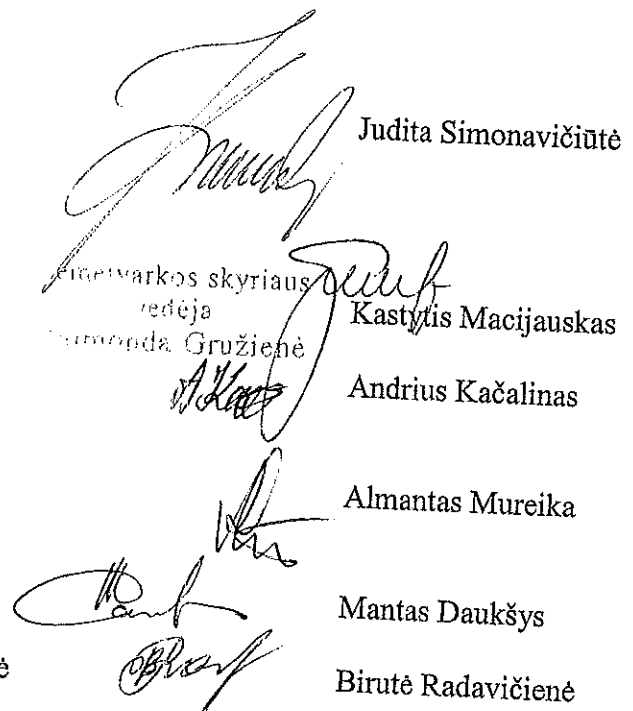 Judita Simonavičiūtė
skyriaus
vedėja
Gružienė
Kastytis Macijauskas
Andrius Kačalinas
Almantas Mureika
Mantas Daukšys
ė
Birutė Radavičienė